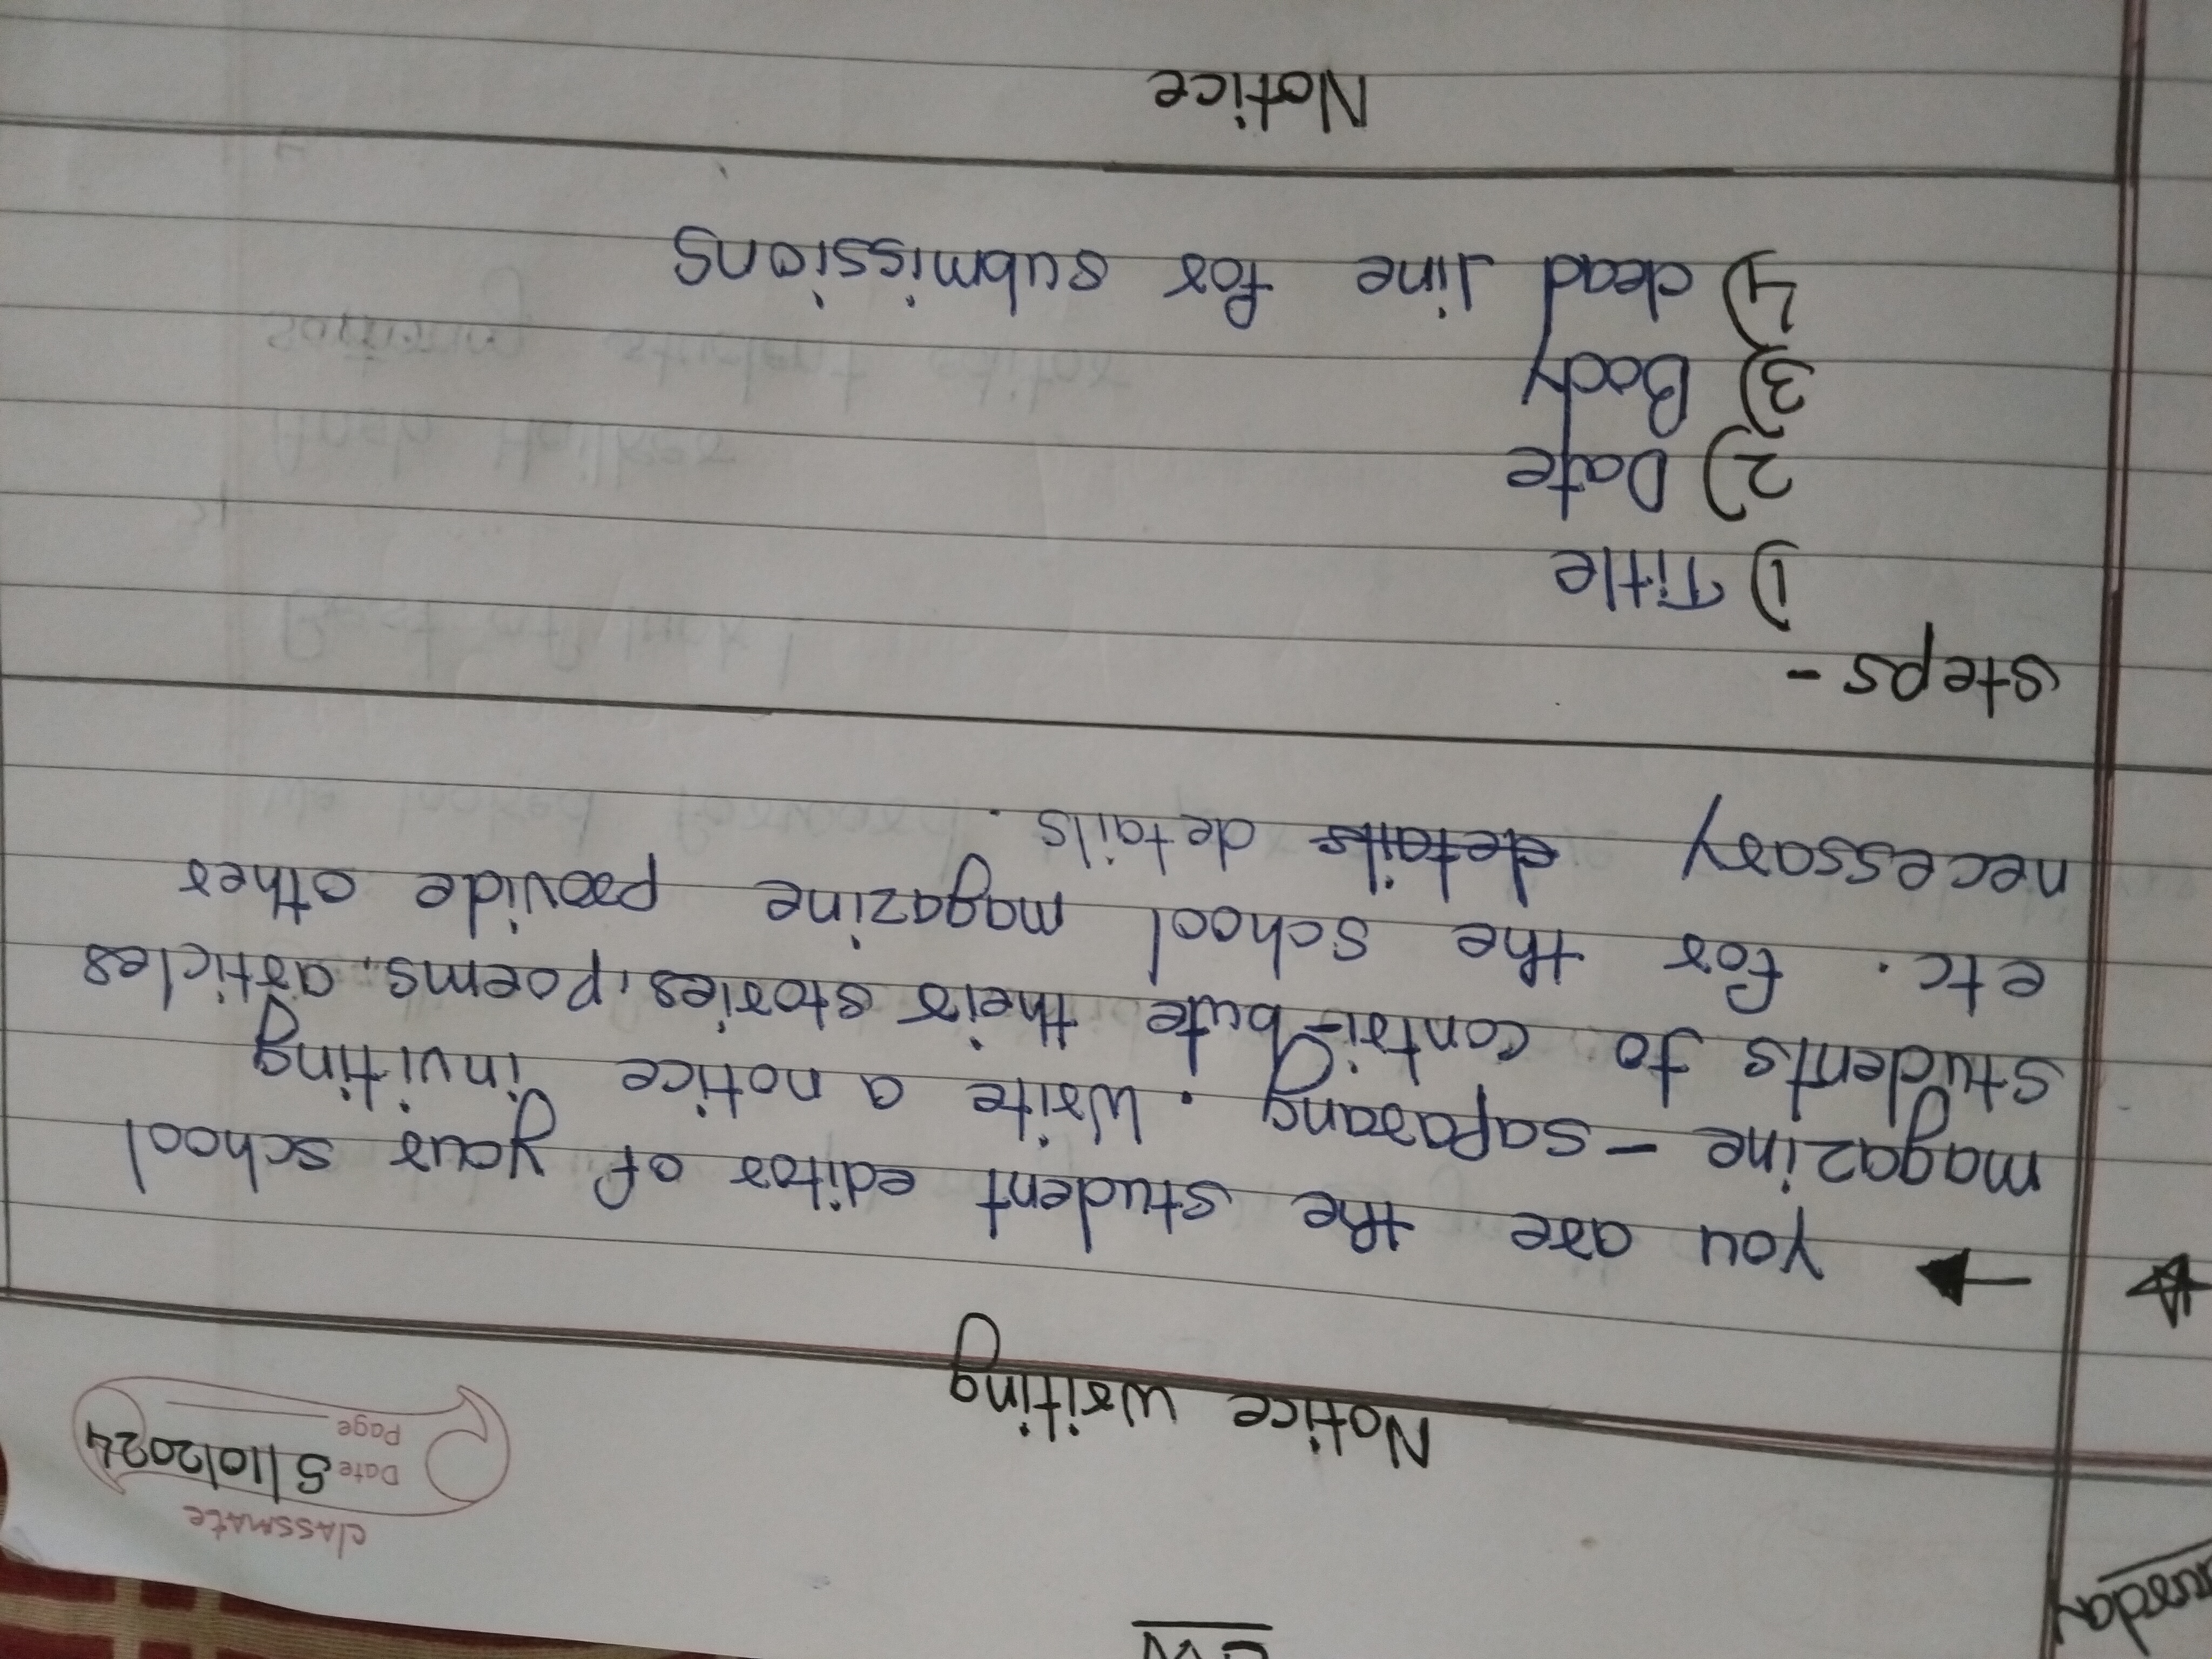 CW
classmate
Date 5/10/2024
Page
Notice writing
you are the student editor of your school
magazine - saparang. Write a notice inviting
students to contri-bute their stories, poems, articles
etc. for the school magazine provide other
necessary details details.
steps -
1) Title
2) Date
3) Body
4) dead line for submissions
Notice